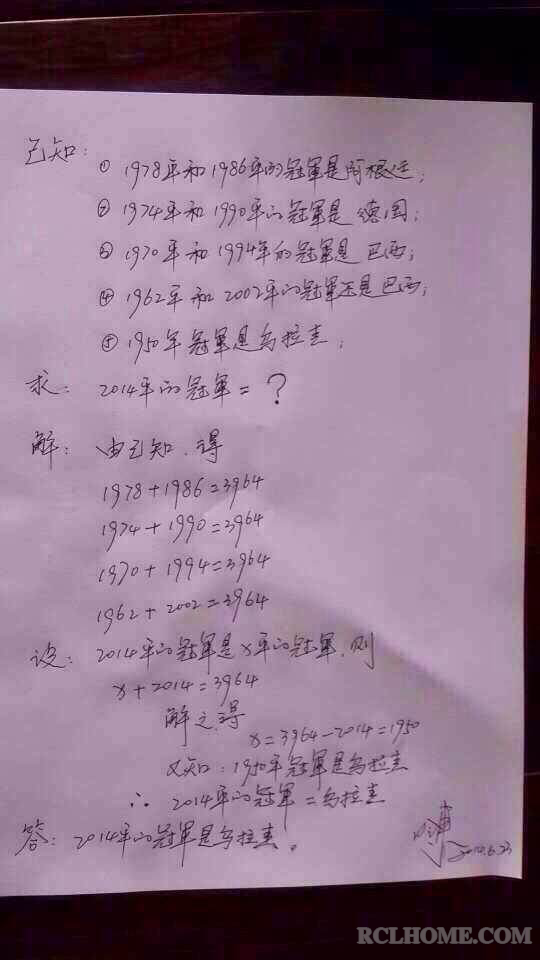 已知:
① 1978年和1986年的冠軍是阿根廷;
② 1974年和1990年的冠軍是德国;
③ 1970年和1994年的冠軍是巴西;
④ 1962年和2002年的冠軍还是巴西;
⑤ 1950年冠軍是乌拉圭;
求: 2014年的冠軍=?
解: 由已知,得
1978+1986=3964
1974+1990=3964
1970+1994=3964
1962+2002=3964
设: 2014年的冠軍是x年的冠軍,则
x+2014=3964
解之,得
x=3964-2014=1950
又知:1950年冠軍是乌拉圭
∴ 2014年的冠軍=乌拉圭
答: 2014年的冠軍是乌拉圭。
2014.6.23
RCLHOME.COM